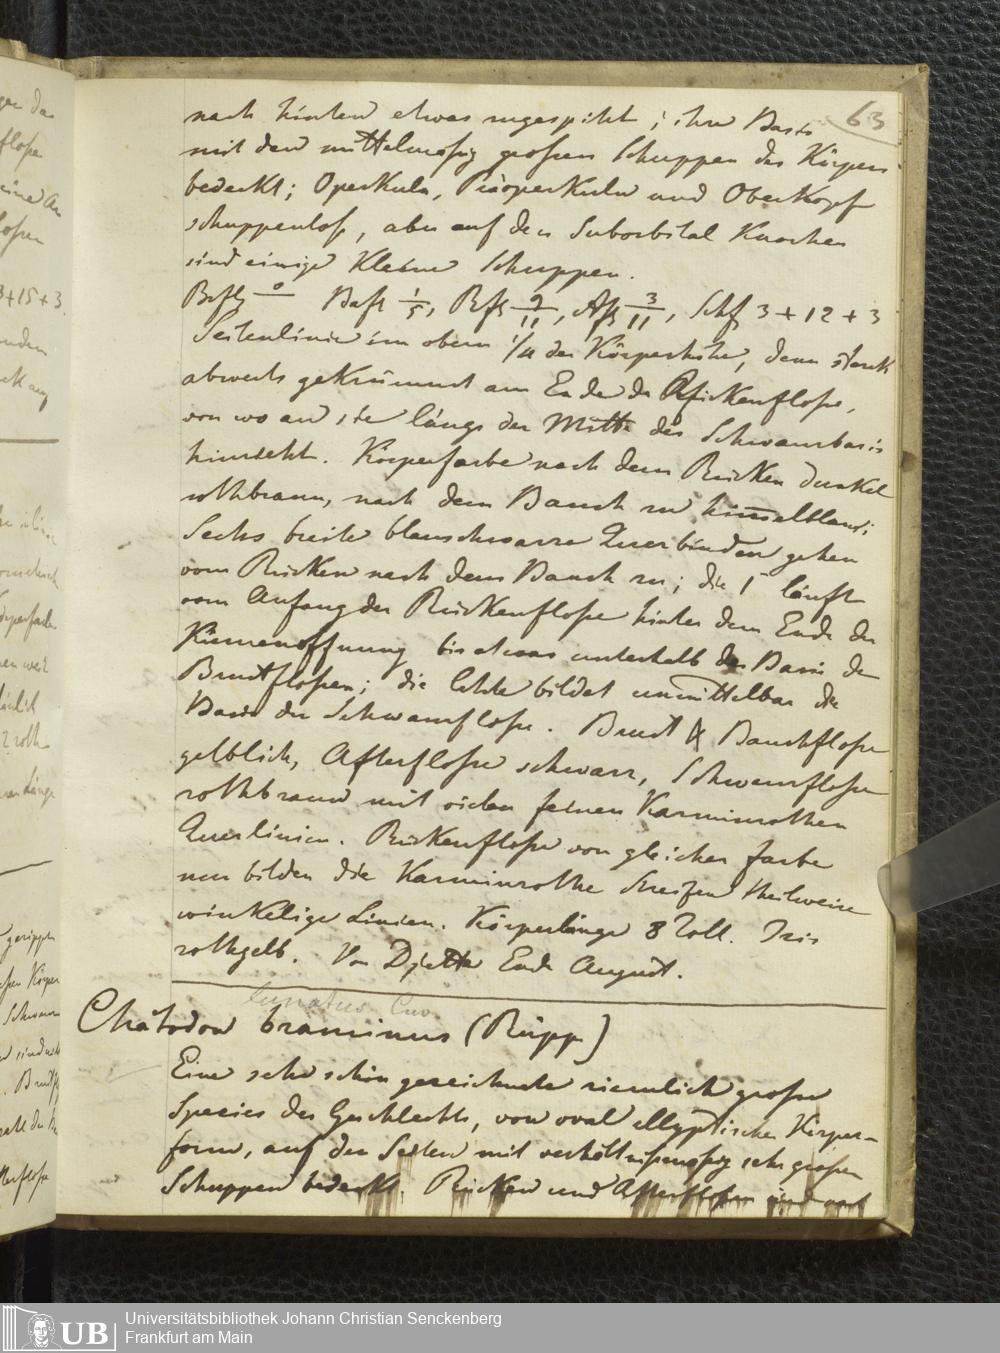 63
nach hinten etwas zugespitzt; ihre Basis
mit den mittelmäsig grosen Schuppen des Körpers
bedeckt; Operkuln, Präoperkuln und Oberkopf
schuppenlos, aber auf den Suborbital Knochen
sind einige kleine Schuppen.
Brfls 0/ Bafl 1/5, Rfls 9/11, Afls 3/11, Schfs 3 + 12 + 3
Seitenlinie im obern 1/4 der Körperhöhe, dann stark
abwerts gekrümmt am Ende der Rückenflosse,
von wo an sie längs der Mitte der Schwanzbasis
hinzieht. Körperfarbe nach dem Rücken dunkel
rothbraun, nach dem Bauch zu himmelblau;
Sechs breite blauschwarze Querbinden gehen
vom Rücken nach dem Bauch zu; die 1 läuft
vom Anfang der Rückenflosse hinter dem Ende der
Kiemenöffnung bis etwas unterhalb der Basis der
Brustflossen; die letzte bildet unmittelbar die
Basis der Schwanzflosse. Brust & Bauchflosse
gelblich, Afterflosse schwarz, Schwanzflosse
rothbraun mit vielen feinen Karminrothen
Querlinien. Rückenflosse von gleicher farbe
nur bilden die Karminrothe Streifen theilweise
winkelige Linien. Körperlänge 8 Zoll. Iris
rothgelb. Von Djetta Ende August.
lunatus Cuv.
Chätodon braminus (Rüpp)
Eine sehr schön gezeichnete ziemlich grosse
Species des Geschlechts, von oval ellyptischer Körper-
form, auf den Seiten mit verhältnismäsig sehr grosen
Schuppen bedeckt. Rücken und Afterflosse sind nach
UB
Universitätsbibliothek Johann Christian Senckenberg
Frankfurt am Main